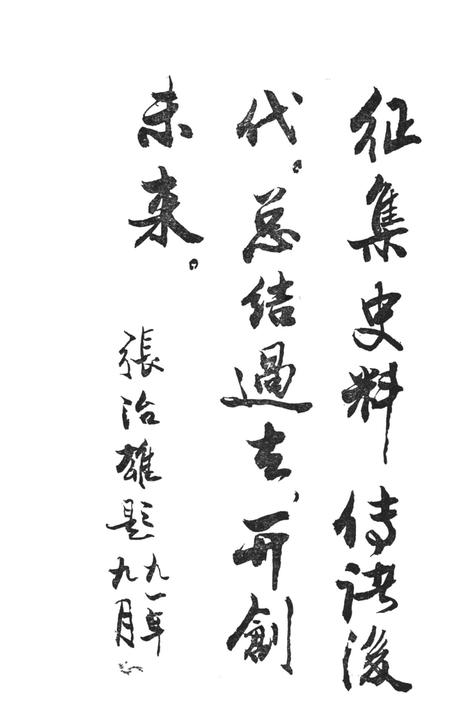 征集史料傳诸後
代。总结過去,开創
未来。
張治雄题
九一年
九月